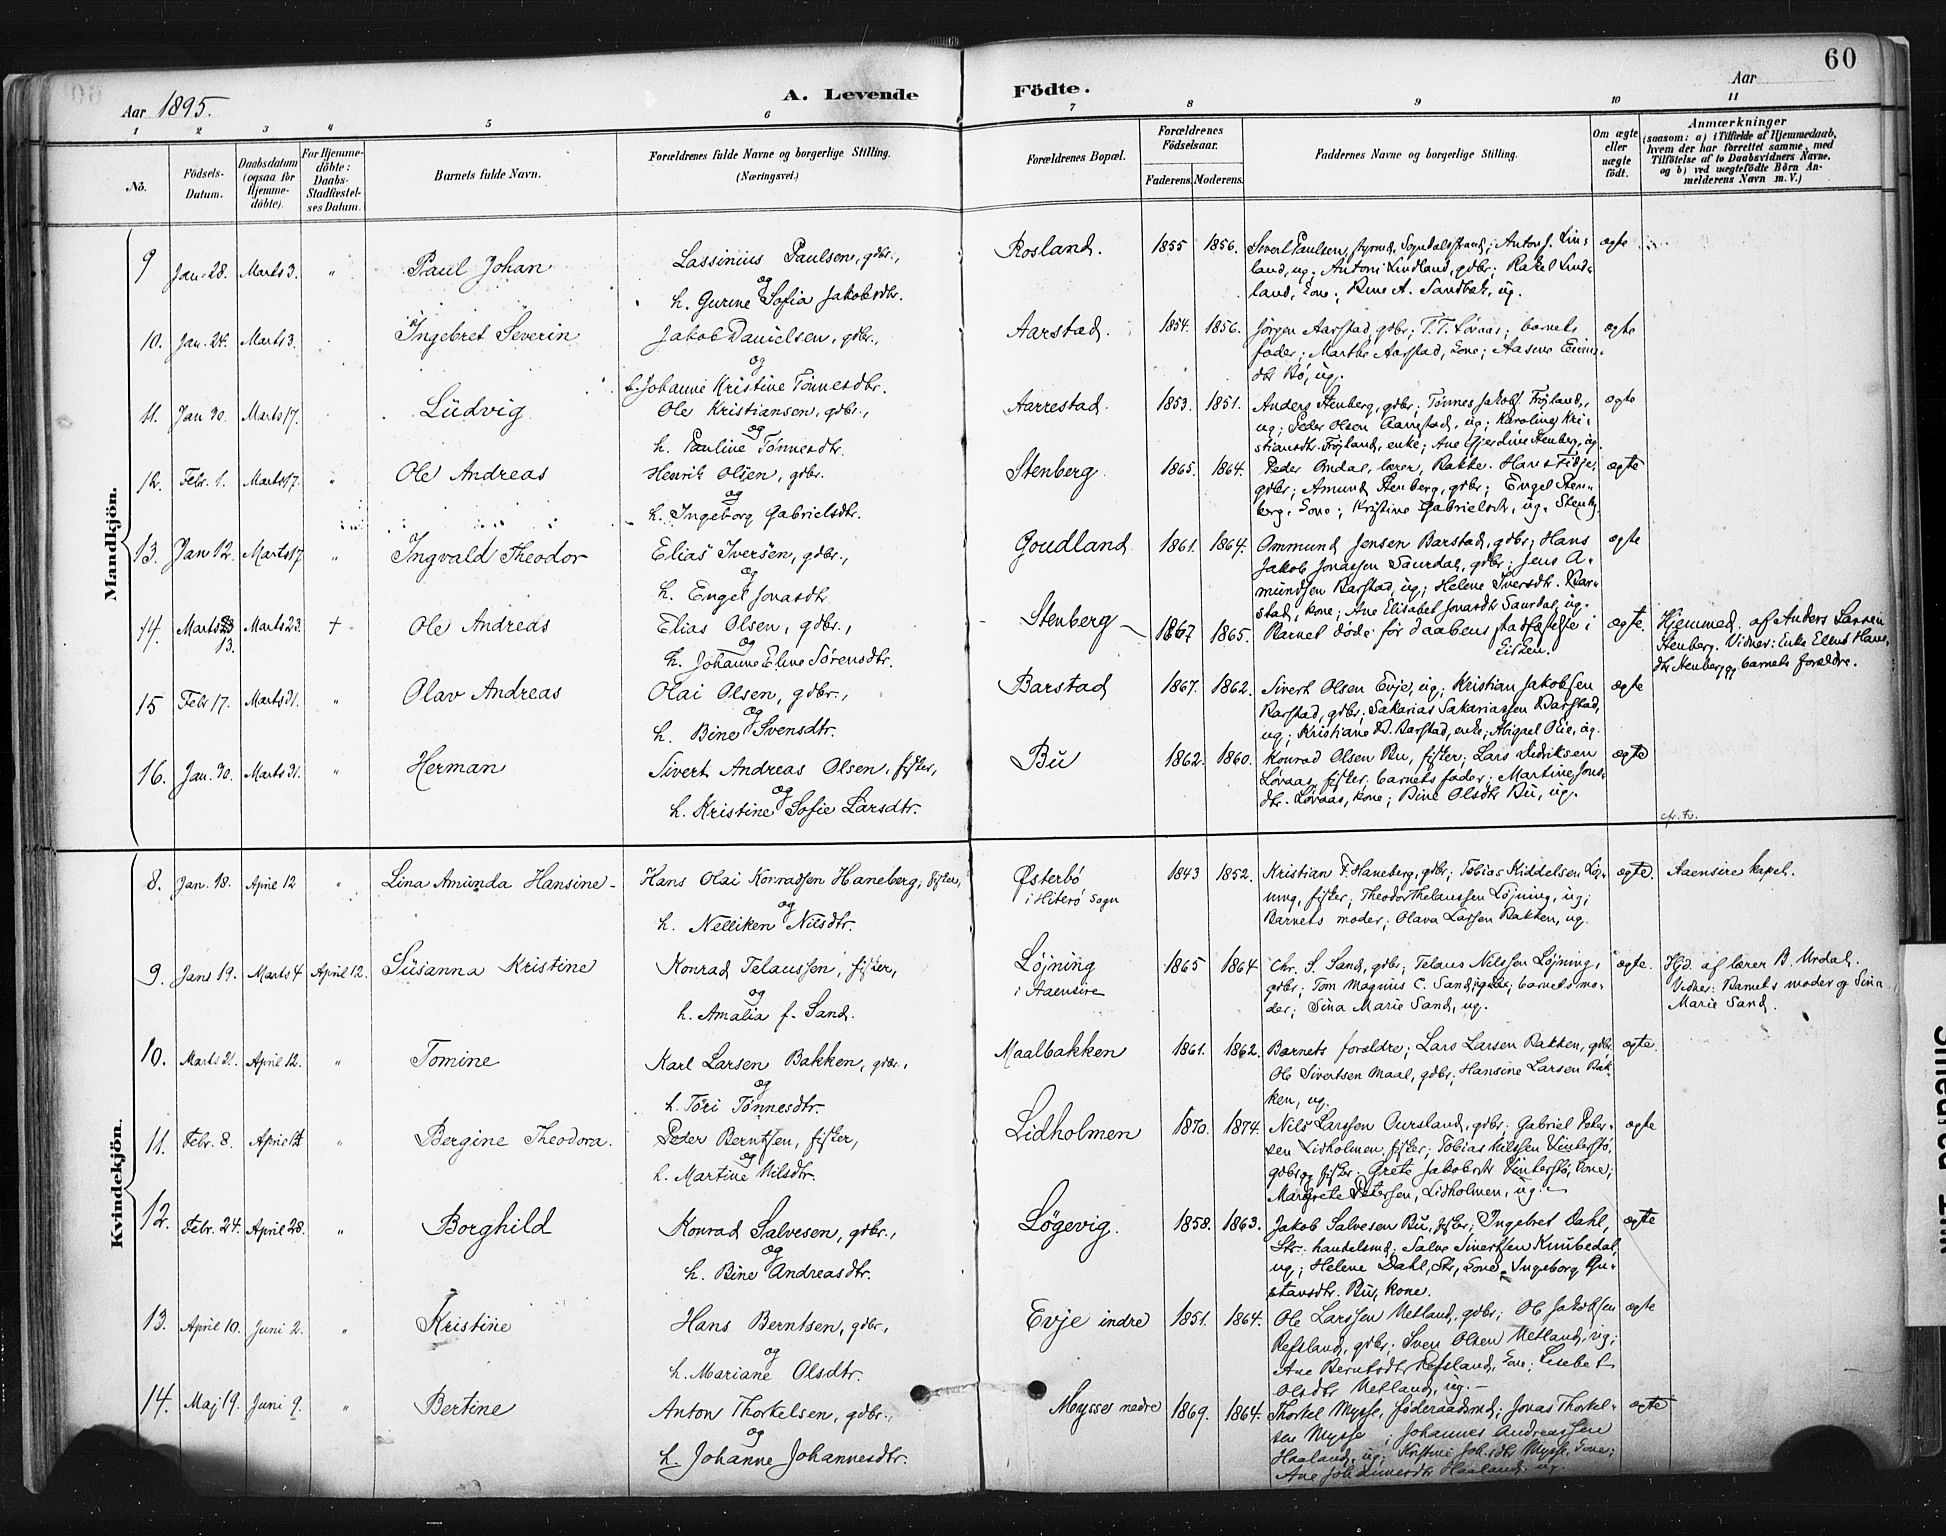 60
Aar 1895.
A. Levende
Födte.
Aar
1 2 3 4 5 6 7 8 9 10 11
No.
Födsels-Datum.
Daabsdatum (ogsaa for Hjemme-döbte).
For Hjemme-döbte: Daabs-Stadfæstel-ses Datum.
Barnets fulde Navn.
Forældrenes fulde Navne og borgerlige Stilling.
(Næringsvei.)
Forældrenes Bopæl.
Forældrenes Födselsaar.
Faderens. Moderens.
Faddernes Navne og borgerlige Stilling.
Om ægte eller uægte födt.
Anmærkninger
(saasom: a) i Tilfælde af Hjemmedaab, hvem der har forrettet samme, med Tilföielse af to Daabsvidners Navne, og b) ved uægtefödte Börn An-melderens Navn m. V.)
Mandkjön.
9 Jan. 28. Marts 3. " Paul Johan Lassinius Paulsen, gdbr., Rosland. 1855 1856. Sivert Paulsen, styrmd, Sogndalsstrand; Anton J. Lin- ægte
og land, ug. Antoni Lindland, gdbr; Rakel Lind-
h. Gurine Sofia Jakobsdtr. land, kone; Bine A. Sandbæk, ug.
10. Jan. 24. Marts 3. Ingebret Severin Jakob Danielsen, gdbr., Aarstad. 1854. 1856. Jörgen Aarstad, gdbr; T. T. Lövaas; barnets ægte
og fader; Marthe Aarstad, kone; Aasene
h. Johanne Kristine Tønnesdtr. dtr Bö, ug.
11. Jan 30. Marts 17. Ludvig Ole Kristiansen, gdbr., Aarrestad. 1853. 1851. Anders Stenberg, gdbr; Tönnes Jakobs. Fröyland, ægte
og ug; Peder Olsen Aarrestad, ug; Karoline Kri-
h. Pauline Tønnesdtr. stiansdtr. Fröyland, enke; Ane Gjerdine Stenberg, ug.
12. Febr. 1. Marts 17. " Ole Andreas Henrik Olsen, gdbr. Stenberg. 1865. 1864. Peder Omdal, lærer, Bakke. Hans Fidje, ægte
og gdbr; Amund Stenberg, gdbr; Engel Sten-
h. Ingeborg Gabrielsdtr. berg, kone; Kristine Gabrielsdtr, ug. Stenbg.
13. Jan 12. Marts 17 " Ingvald Theodor Elias Iversen, gdbr., Goudland. 1861. 1864. Ommund Jensen Barstad, gdbr; Hans ægte
og Jakob Jonassen Saurdal, gdbr; Jens A-
h. Engel Jonasdtr. mundsen Barstad, ug; Helene Iversdtr. Bar-
stad, kone; Ane Elisabet Jonasdtr Saurdal, ug.
14. Marts 13. Marts 23. + Ole Andreas Elias Olsen, gdbr., Stenberg 1867 1865. Barnet döde för daabens stadfæstelse i ægte. Hjemmed. af Anders Larsen
og kirken. Stenberg. Vidner: Enke Ellen Hans-
h. Johanne Eline Sørensdtr. dtr Stenberg og barnets forældre.
15 Febr 17. Marts 31. " Olav Andreas Olai Olsen, gdbr., Barstad 1867. 1862. Sivert Olsen Evje, ug; Kristian Jakobsen ægte
og Barstad, gdbr; Sakarias Sakariassen Barstad,
h. Bine Svensdtr. ug; Kristiane D. Barstad, enke; Abigael Olie, ug.
16. Jan. 30. Marts 31. " Herman Sivert Andreas Olsen, fisker, Bu 1862. 1860. Konrad Olsen Bu, fisker; Lars Didriksen ægte
og Lövaas, fisker; barnets fader; Martine Jons-
h. Kristine Sofie Larsdtr. dtr. Lövaas, kone; Bine Olsdtr Bu, ug.
Kvindekjön.
8. Jan. 18. April 12 " Lina Amunda Hansine Hans Olai Konradsen Haneberg, fisker, Østerbö 1843 1852. Kristian F. Haneberg, gdbr; Tobias Kiddelsen Löj- ægte. Aaensire kapel.
og i Hiterö sogn ning, fisker; Theodor Thelaussen Löjning, ug;
h. Nelliken Nilsdtr. Barnets moder; Olava Larsen Bakken, ug.
9. Jan 19. Marts 4 April 12. Susanna Kristine Konrad Telaussen, fisker, Löjning 1865 1864 Chr. S. Sand, gdbr; Telaus Nilssen Löjning, ægte. Hjd. af lærer B. Urdal.
og i Aaensire gdbr; Tom Magnus C. Sand, gdbr; barnets mo- Vidner: Barnets moder og Sina
h. Amalia f. Sand. der; Sina Marie Sand, ug. Marie Sand.
10. Marts 21. April 12. " Tomine Karl Larsen Bakken, gdbr., Maalbakken 1861. 1862. Barnets forældre; Lars Larsen Bakken, gdbr ægte.
og Ole Sivertsen Maal, gdbr; Hansine Larsen Bak-
h. Töri Tønnesdtr. ken, ug.
11. Febr. 8. April 14 " Bergine Theodora. Peder Berntsen, fisker, Lidholmen 1870. 1874. Nils Larssen Aursland, gdbr; Gabriel Peter- ægte
og sen Lidholmen, fisker; Tobias Nilssen Vinterstö,
h. Martine Nilsdtr. gdbr og fisker; Grete Jakobsdtr Vinterstö, kone;
Margrete Petersen, Lidholmen, ug.
12. Febr. 24. April 28. " Borghild Konrad Salvesen, gdbr., Lögevig. 1858. 1863. Jakob Salvesen Bu, fisker; Ingebret Dahl, ægte
og Str. handelsmd; Salve Sivertsen Knubedal,
h. Bine Andreasdtr. ug; Helene Dahl, Str, kone; Ingeborg Gu-
stavsdtr. Bu, kone.
13. April 10. Juni 2. " Kristine Hans Berntsen, gdbr., Evje indre 1851. 1864. Ole Larssen Netland, gdbr; Ole Jakobsen ægte
og Refsland, gdbr; Sven Olsen Netland, ug;
h. Mariane Olsdtr. Ane Berntsdtr Refsland, kone; Lisebet
Olsdtr Netland, ug.
14. Maj 19. Juni 9. " Bertine Anton Thorkelsen, gdbr., Mysse nedre 1869. 1864. Thorkel Mysse, föderaadsmd; Jonas Thorkel- ægte
og sen Mysse; Johannes Andreassen
h. Johanne Johannesdtr. Haaland, ug; Kristine Joh.dtr Mysse, kone;
Ane Johannesdtr Haaland, ug.